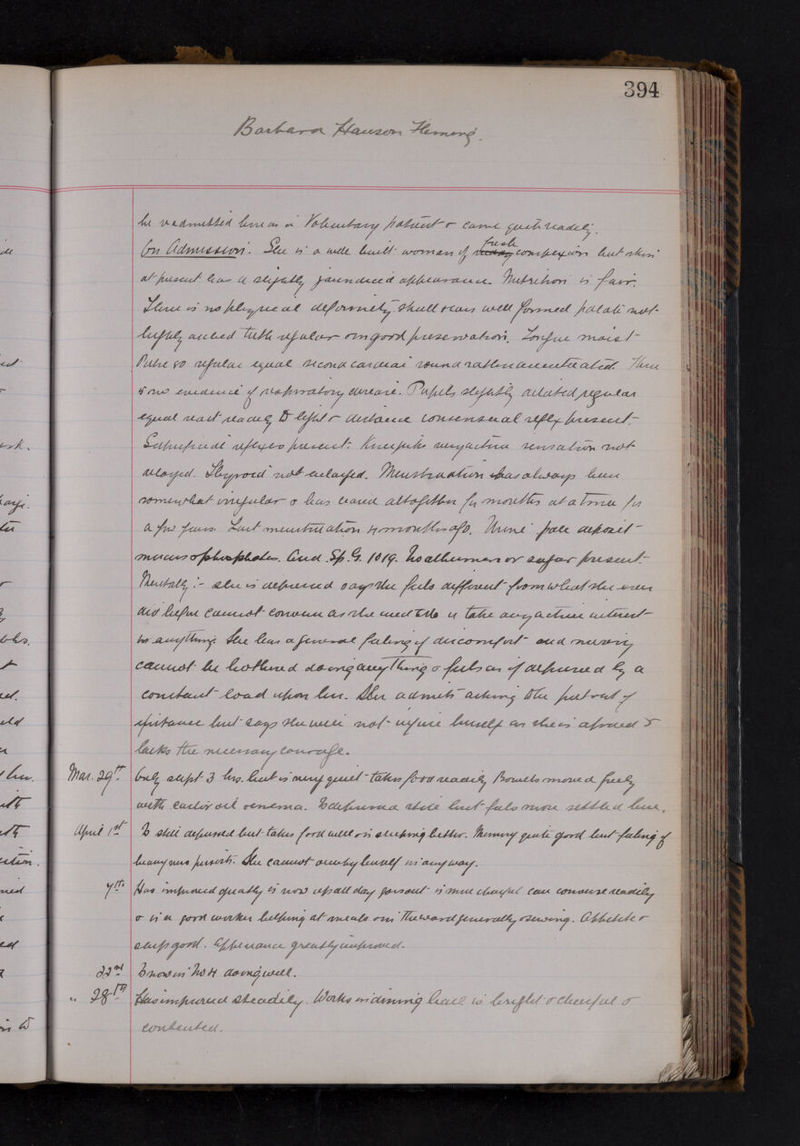 394
Barbara Hauson Fleming.
be readmitted here as a Voluntary patient & came quite readily.
On Admission. She is a well built woman of fresh complexion but skin
at present has a slightly jaundiced appearance. Nutrition is fair.
There is no physical deformity skull & ears well formed palate not
highly arched teeth regular & in good preservation. Tongue moist
Pulse 80 regular equal second cardiac sound rather accentuated. There
is no evidence of respiratory disease. Pupils slightly dilated regular
equal react readily to light & distance consensual reflex present.
Superficial reflexes present. Kneejerks very active sensation not
delayed. Thyroid not enlarged. Menstruation has always been
somewhat irregular & has ceased altogether for months at a time for
a few years. Last menstruation 4 months ago. Urine pale deposit
mucus & phosphates. Acid. Sp. G. 1019. No albumen or sugar present.
Mentally:- she is depressed says she feels different from what she ever
did before cannot converse as she used to & take any active interest
in anything. She has a general feeling of discomfort and misery
cannot be bothered doing anything & feels as if depressed by a
constant load upon her. She admits asking to be put out of
but says she will not injure herself as she is afraid &
lacks the necessary courage.
Mar. 29th Only slept 3 hrs. but is very quiet takes food readily Bowels moved freely
with castor oil & enema. Is depressed still but feels more settled here.
April 1st Is still depressed but takes food well & is sleeping better. Memory quite good but feeling of
persists. She cannot occupy herself in any way.
7th Has improved greatly is now up all day & out is more cheerful can converse readily
& is a good worker helping at meals & in the ward generally & sewing. Appetite &
sleep good. Appearance greatly improved.
22nd Is now in No 4 doing well.
" 28th Has improved steadily. Works in dining hall is bright & cheerful &
contented.